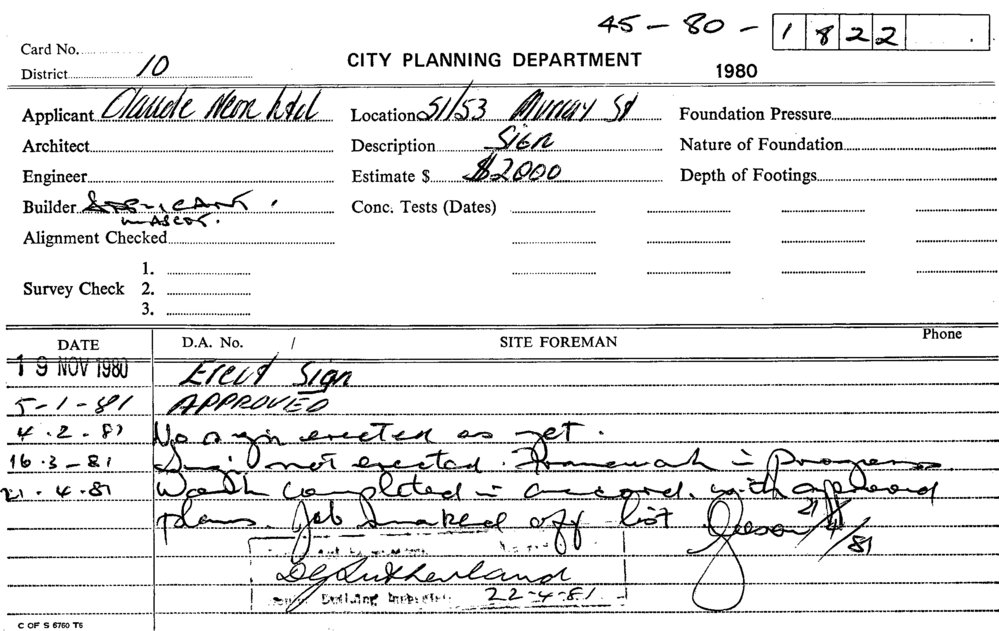 45-80-1822
Card No.
District 10
CITY PLANNING DEPARTMENT
1980
Applicant Claude Neon Ltd
Location 51/53 Murray St
Foundation Pressure
Architect
Description Sign
Nature of Foundation
Engineer
Estimate $ $2000
Depth of Footings
Builder
MASCOT.
Conc. Tests (Dates)
Alignment Checked
1.
Survey Check 2.
3.
DATE D.A. No. / SITE FOREMAN Phone
19 NOV 1980 Erect Sign
5-1-81 APPROVED
4.2.81 No sign erected as yet.
16.3-81 Sign not erected. Framework in Progress
21.4.81 Work completed in accord. with approved
plans. Job marked off list 21/4/81
DG Sutherland
Building Inspector 22-4-81
C OF S 6760 T6